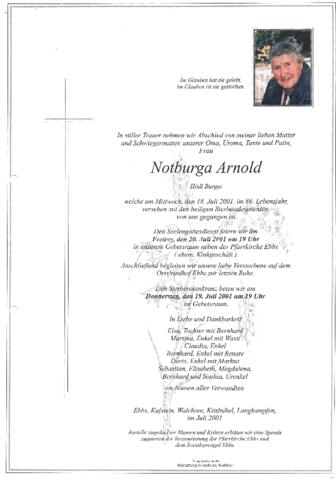 Im Glauben hat sie gelebt.
Im Glauben ist sie gestorben.
In stiller Trauer nehmen wir Abschied von meiner lieben Mutter
und Schwiegermutter, unserer Oma, Uroma, Tante und Patin,
Frau
Notburga Arnold
Hödl Burgei
welche am Mittwoch, den 18. Juli 2001, im 86. Lebensjahr,
versehen mit den heiligen Sterbesakramenten,
von uns gegangen ist.
Den Seelengottesdienst feiern wir am
Freitag, den 20. Juli 2001 um 19 Uhr
in unserem Gebetsraum neben der Pfarrkirche Ebbs
( ehem. Kinkgeschäft ).
Anschließend begleiten wir unsere liebe Verstorbene auf dem
Ortsfriedhof Ebbs zur letzten Ruhe.
Den Sterberosenkranz beten wir am
Donnerstag, den 19. Juli 2001 um 19 Uhr
im Gebetsraum.
In Liebe und Dankbarkeit
Elsa, Tochter mit Bernhard
Martina, Enkel mit Wast
Claudia, Enkel
Bernhard, Enkel mit Renate
Doris, Enkel mit Markus
Sebastian, Elisabeth, Magdalena,
Bernhard und Sophia, Urenkel
im Namen aller Verwandten
Ebbs, Kufstein, Walchsee, Kitzbühel, Langkampfen,
im Juli 2001
Anstelle zugedachter Blumen und Kränze erbitten wir eine Spende
zugunsten der Restaurierung der Pfarrkirche Ebbs und
dem Sozialsprengel Ebbs.